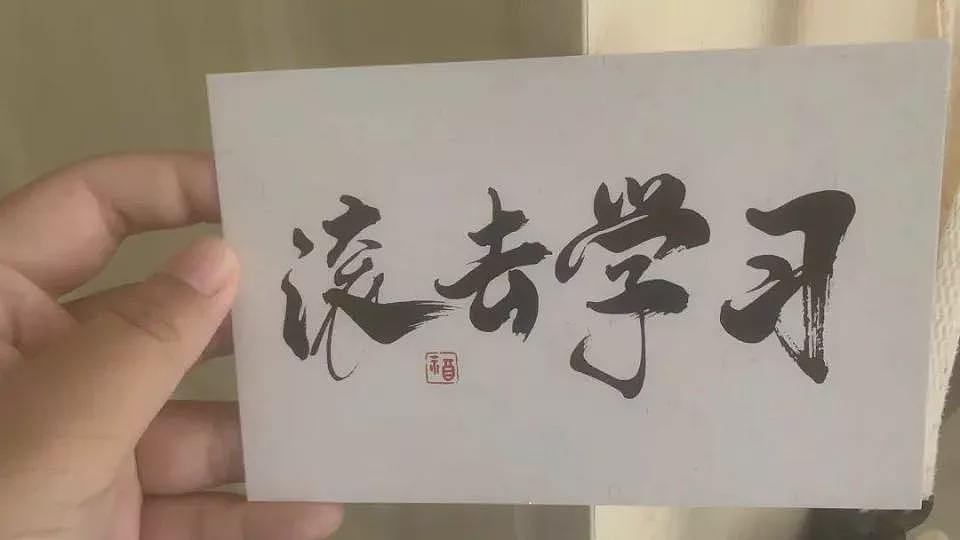 滚去学习
福